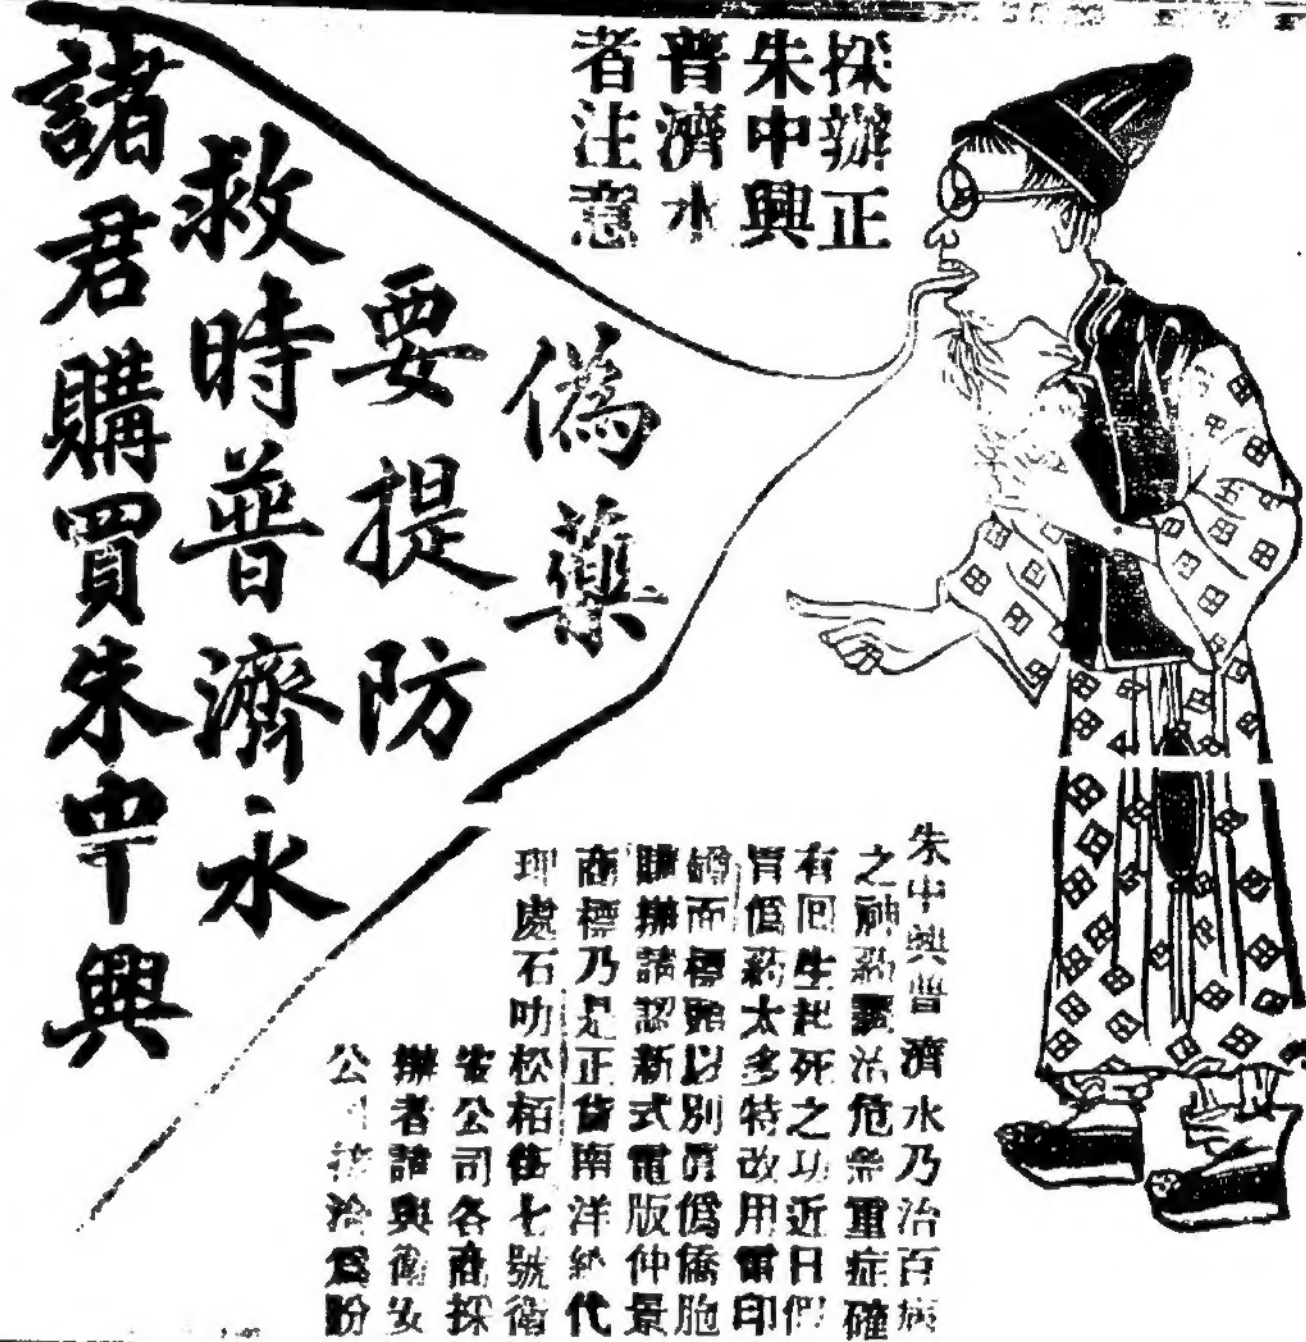 採辦正
朱中興
普濟水
者注意
諸君購買朱中興
救時普濟水
要提防
偽藥
朱中興普濟水乃治百病
之神葯讓治危急重症確
有回生起死之功近日假
冒偽葯太多特改用電印
鐏而標題以別真偽僑胞
購辦請認新式電版仲景
商標乃是正貨南洋總代
理處石叻松柏街七號衛
安公司各商採
辦者請與衛安
公司接洽爲盼